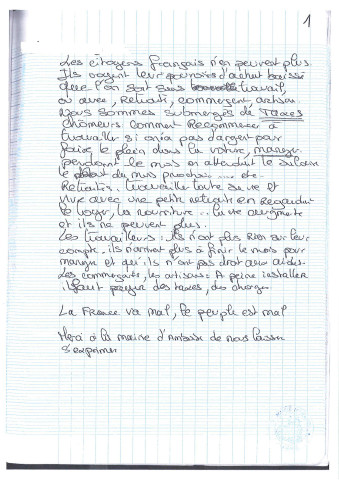 1
Les citoyens français n'en peuvent plus.
Ils voyent leur pouvoirs d'achat baissé
que l'on soit sans travail,
ou avec, Retraité, commerçent, artisan.
Nous sommes submergés de TAXES
Chômeurs. Comment Recommencer à
travailler si on a pas d'argent pour
faire le plein dans la voiture, manger
pendant le mois en attendant le salaire
le début du mois prochain .... etc.
Retraités. travailler toute sa vie et
vivre avec une petite retraite en Regardant
le loyer, la nourriture... la vie augmente
et ils ne peuvent plus.
Les travailleurs : ils n'ont plus Rien sur leur
compte, ils n'arrivent plus à finir le mois pour
manger et qu'ils n'ont pas droit aux aides.
Les commerçants, les artisans = A peine installer
il faut payer des taxes, des charges
La France va mal, le peuple est mal
Merci à la mairie de nous laisser
s'exprimer